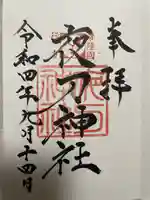 奉拝
夜刀神社
令和四年九月十四日